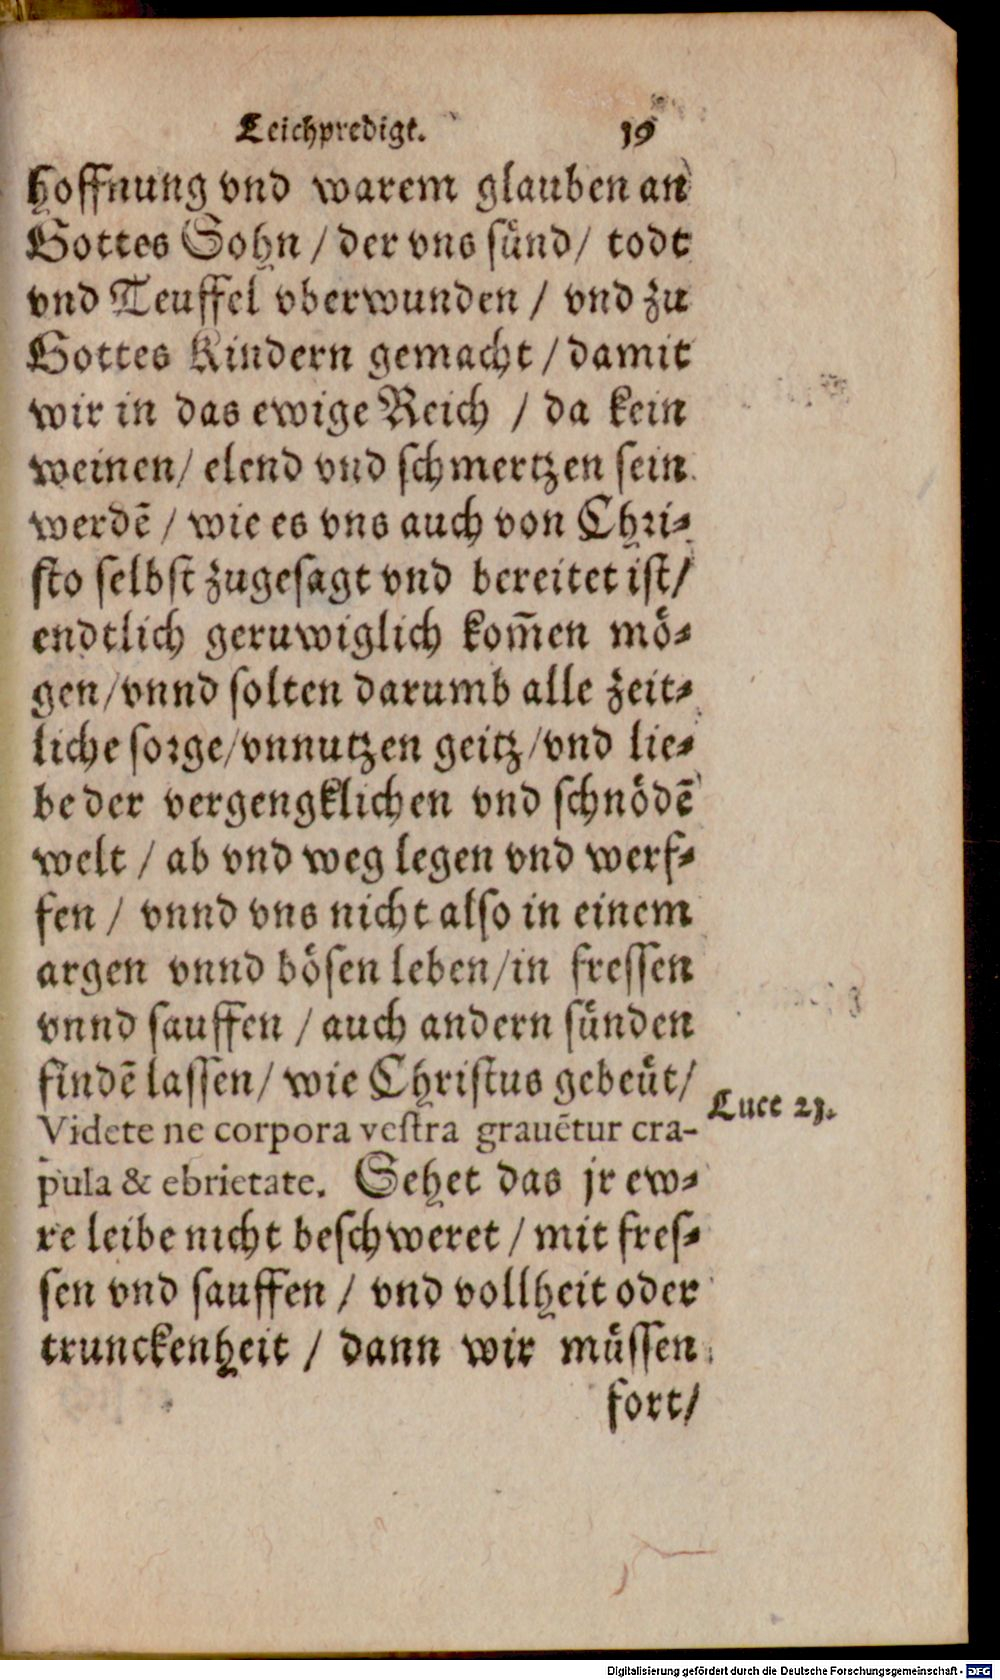 Leichpredigt. 19
hoffnung vnd warem glauben an
Gottes Sohn / der vns sünd / todt
vnd Teuffel vberwunden / vnd zu
Gottes Kindern gemacht / damit
wir in das ewige Reich / da kein
weinen / elend vnd schmertzen sein
werdē / wie es vns auch von Chri-
sto selbst zugesagt vnd bereitet ist /
endtlich geruwiglich kom̄en mö-
gen / vnnd solten darumb alle zeit-
liche sorge / vnnutzen geitz / vnd lie-
be der vergengklichen vnd schnödē
welt / ab vnd weg legen vnd werf-
fen / vnnd vns nicht also in einem
argen vnnd bösen leben / in fressen
vnnd sauffen / auch andern sünden
findē lassen / wie Christus gebeüt /
Luce 21.
Videte ne corpora vestra grauētur cra-
pula & ebrietate. Sehet das jr ew-
re leibe nicht beschweret / mit fres-
sen vnd sauffen / vnd vollheit oder
trunckenheit / dann wir müssen
fort /
Digitalisierung gefördert durch die Deutsche Forschungsgemeinschaft - DFG